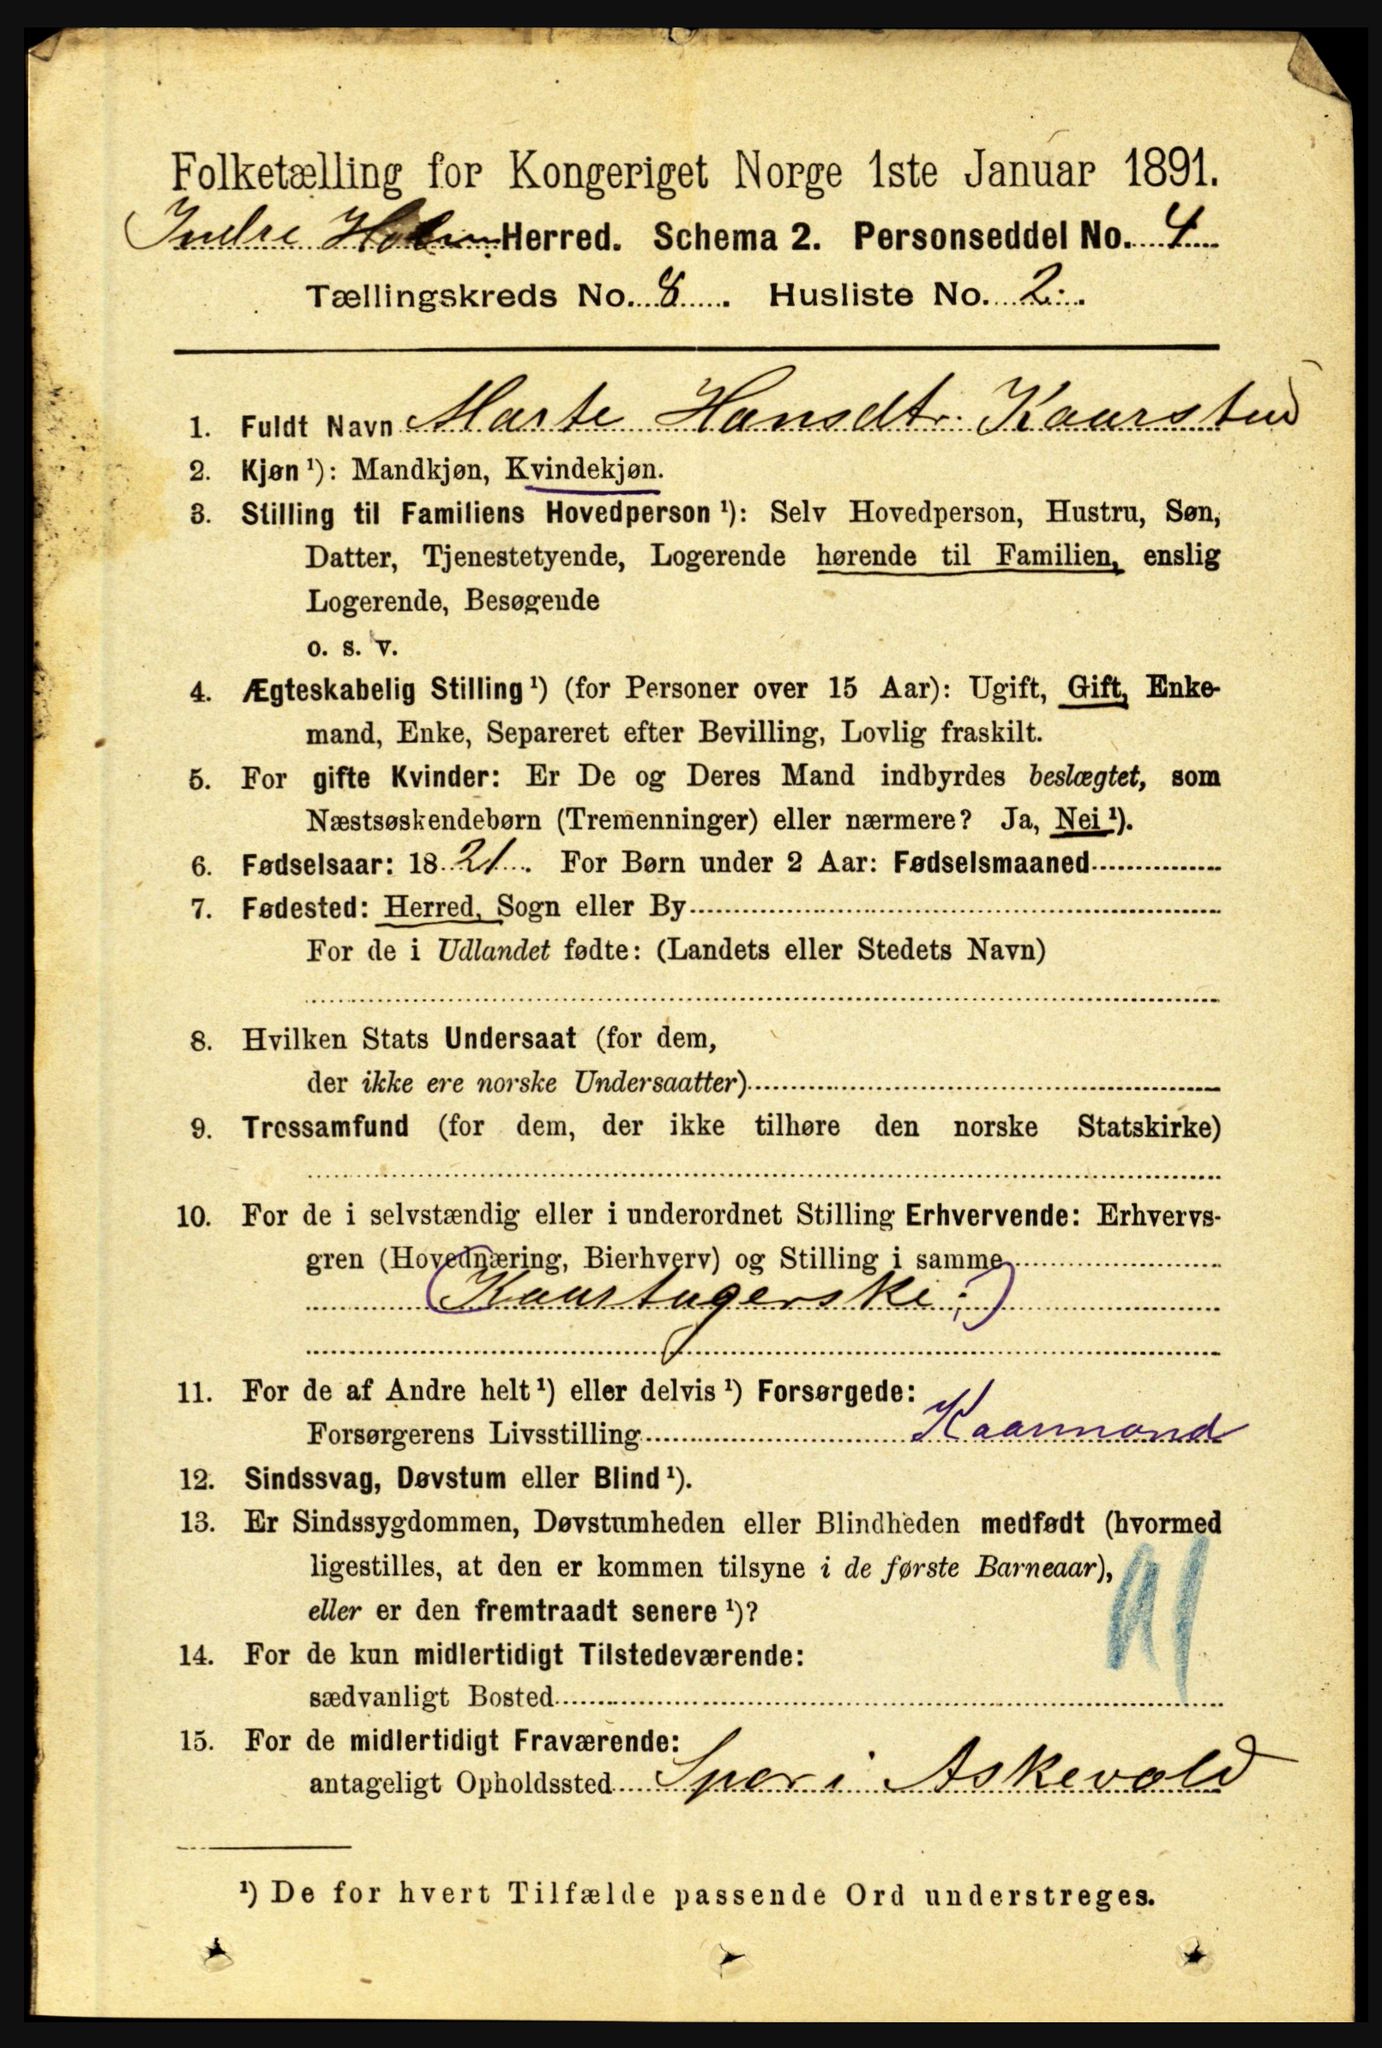 Folketælling for Kongeriget Norge 1ste Januar 1891.
Indre Holm Herred. Schema 2. Personseddel No. 4
Tællingskreds No. 8. Husliste No. 2.
1. Fuldt Navn Marte Hansdtr. Kaarstad
2. Kjøn ¹): Mandkjøn, Kvindekjøn.
3. Stilling til Familiens Hovedperson ¹): Selv Hovedperson, Hustru, Søn,
Datter, Tjenestetyende, Logerende hørende til Familien, enslig
Logerende, Besøgende
o. s. v.
4. Ægteskabelig Stilling ¹) (for Personer over 15 Aar): Ugift, Gift, Enke-
mand, Enke, Separeret efter Bevilling, Lovlig fraskilt.
5. For gifte Kvinder: Er De og Deres Mand indbyrdes beslægtet, som
Næstsøskendebørn (Tremenninger) eller nærmere? Ja, Nei ¹).
6. Fødselsaar: 1821. For Børn under 2 Aar: Fødselsmaaned
7. Fødested: Herred, Sogn eller By
For de i Udlandet fødte: (Landets eller Stedets Navn)
8. Hvilken Stats Undersaat (for dem,
der ikke ere norske Undersaatter)
9. Trossamfund (for dem, der ikke tilhøre den norske Statskirke)
10. For de i selvstændig eller i underordnet Stilling Erhvervende: Erhvervs-
gren (Hovednæring, Bierhverv) og Stilling i samme
(Kaartagerske.)
11. For de af Andre helt ¹) eller delvis ¹) Forsørgede:
Forsørgerens Livsstilling Kaarmand
12. Sindssvag, Døvstum eller Blind ¹).
13. Er Sindssygdommen, Døvstumheden eller Blindheden medfødt (hvormed
ligestilles, at den er kommen tilsyne i de første Barneaar),
eller er den fremtraadt senere ¹)?
14. For de kun midlertidigt Tilstedeværende:
sædvanligt Bosted
15. For de midlertidigt Fraværende:
antageligt Opholdssted i Askevold
¹) De for hvert Tilfælde passende Ord understreges.